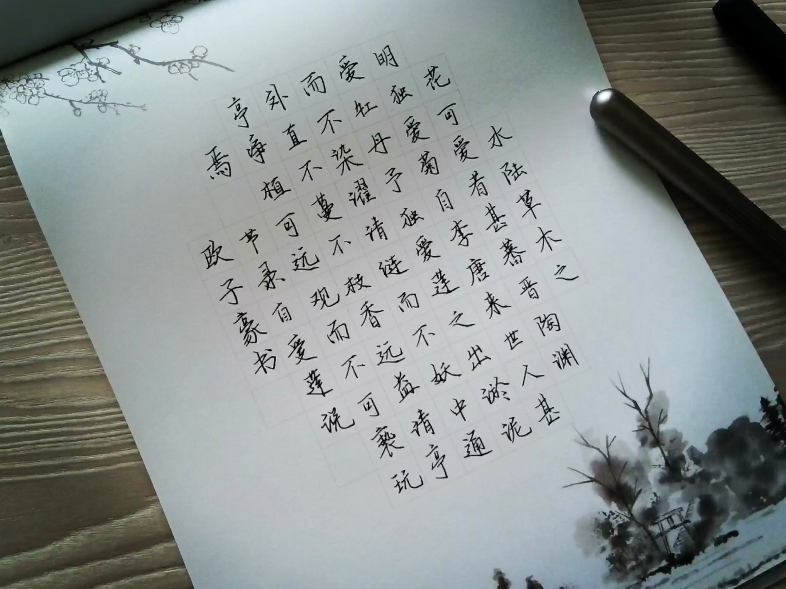 水陆草木之
花可爱者甚蕃晋陶渊
明独爱菊自李唐来世人甚
爱牡丹予独爱莲之出淤泥
而不染濯清涟而不妖中通
外直不蔓不枝香远益清亭
亭净植可远观而不可亵玩
焉
节录自爱莲说
欧子豪书